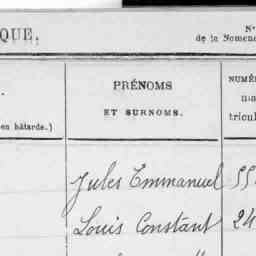 QUE.
N°
de la Nomenc
PRÉNOMS
ET SURNOMS.
NUMÉ
ma
tricul
en bâtarde.)
Jules Emmanuel 55
Louis Constant 24